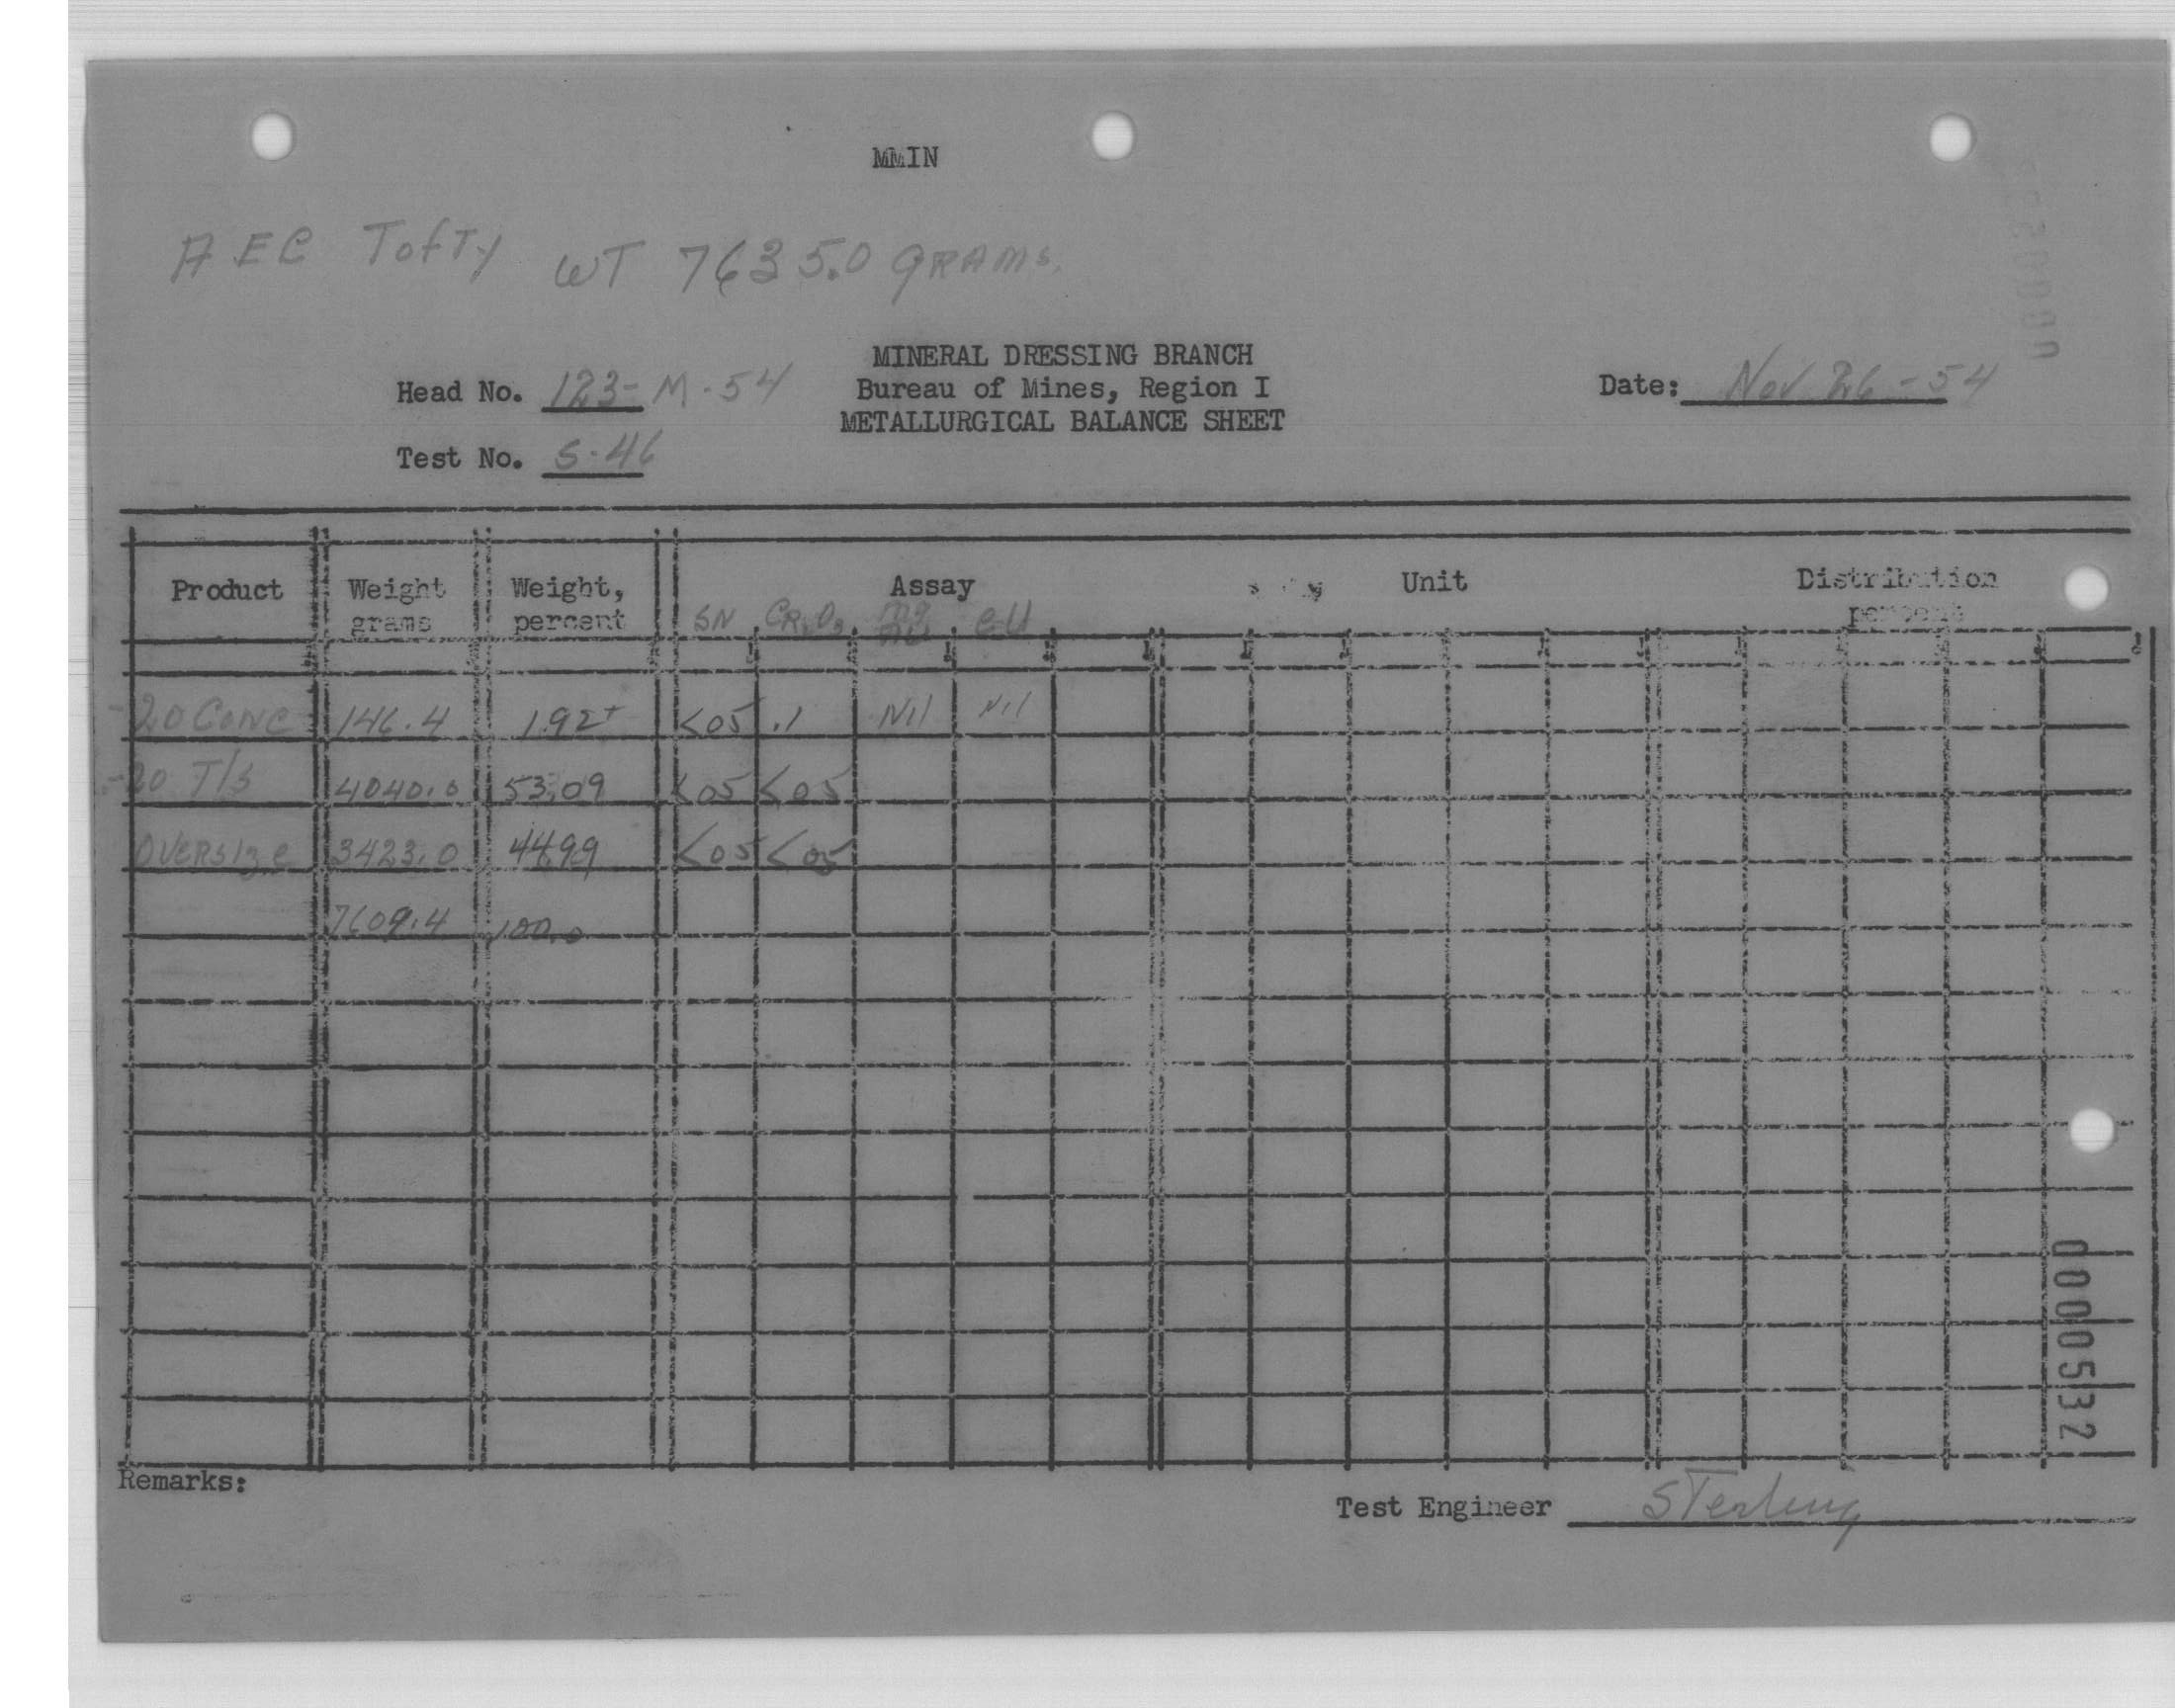 MMIN
AEC Tofty WT 7635.0 GRAMS.
MINERAL DRESSING BRANCH
Head No. 123-M-54 Bureau of Mines, Region I Date: Nov 26-54
METALLURGICAL BALANCE SHEET
Test No. S-46
Product Weight grams Weight, percent Assay Unit Distribution percent
SN CR2O3 eU
-20 Conc 146.4 1.92+ <05 .1 Nil Nil
-20 T/s 4040.0 53.09 <05 <05
Oversize 3423.0 44.99 <05 <05
7609.4 100.0
0000532
Remarks:
Test Engineer Sterling